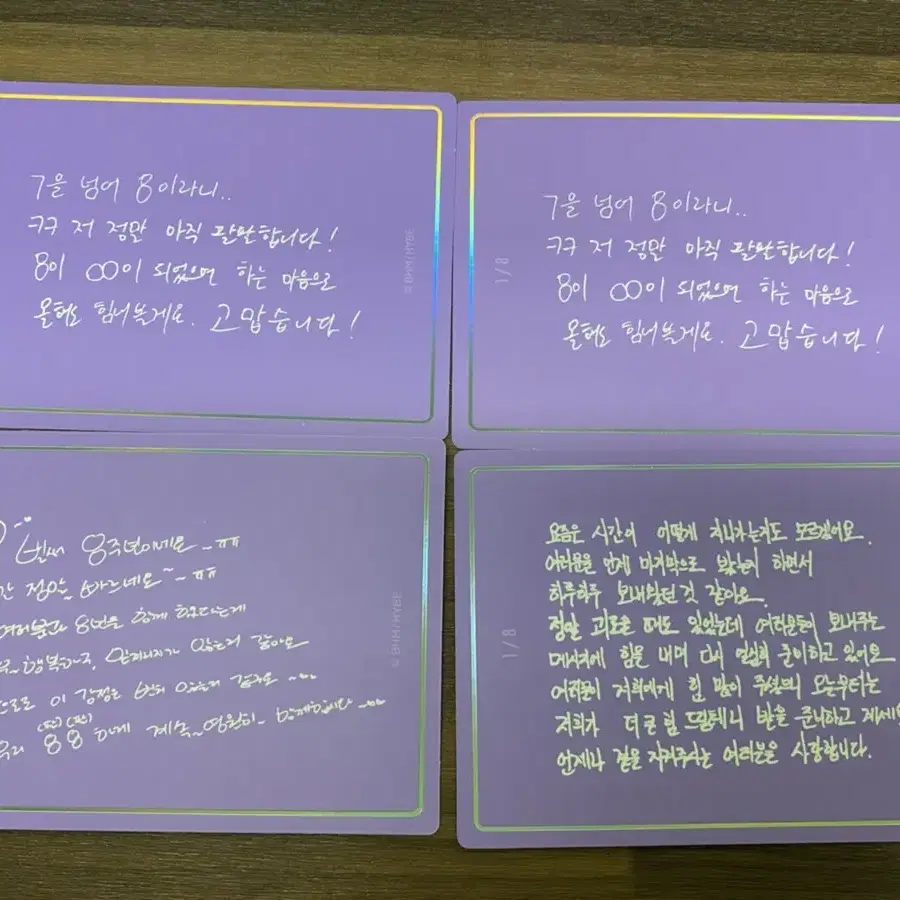 7을 넘어 8이라니..
ㅋㅋ 저 정말 아직 팔팔합니다!
8이 ∞이 되었으면 하는 마음으로
올해도 힘내볼게요. 고맙습니다!
© BHM/HYBE
7을 넘어 8이라니..
ㅋㅋ 저 정말 아직 팔팔합니다!
8이 ∞이 되었으면 하는 마음으로
올해도 힘내볼게요. 고맙습니다!
1/8
벌써 8주년이네요 ~ㅠㅠ
정말 빠르네요~ ~ㅠㅠ
8년을 함께 했다는게
행복하고,
이 감정은
88 하게 계속 영원히 함께합시다
© BHM/HYBE
요즘은 시간이 어떻게 지나가는지도 모르겠어요.
여러분을 언제 마지막으로 봤는지 하면서
하루하루 보내왔던 것 같아요.
정말 괴로울 때도 있었는데 여러분들이 보내주는
메시지에 힘을 내며 다시 열심히 준비하고 있어요
여러분이 저희에게 힘 많이 주셨으니 오늘부터는
저희가 더 큰 힘 드릴테니 받을 준비하고 계세요
언제나 곁을 지켜주시는 여러분을 사랑합니다.
1/8